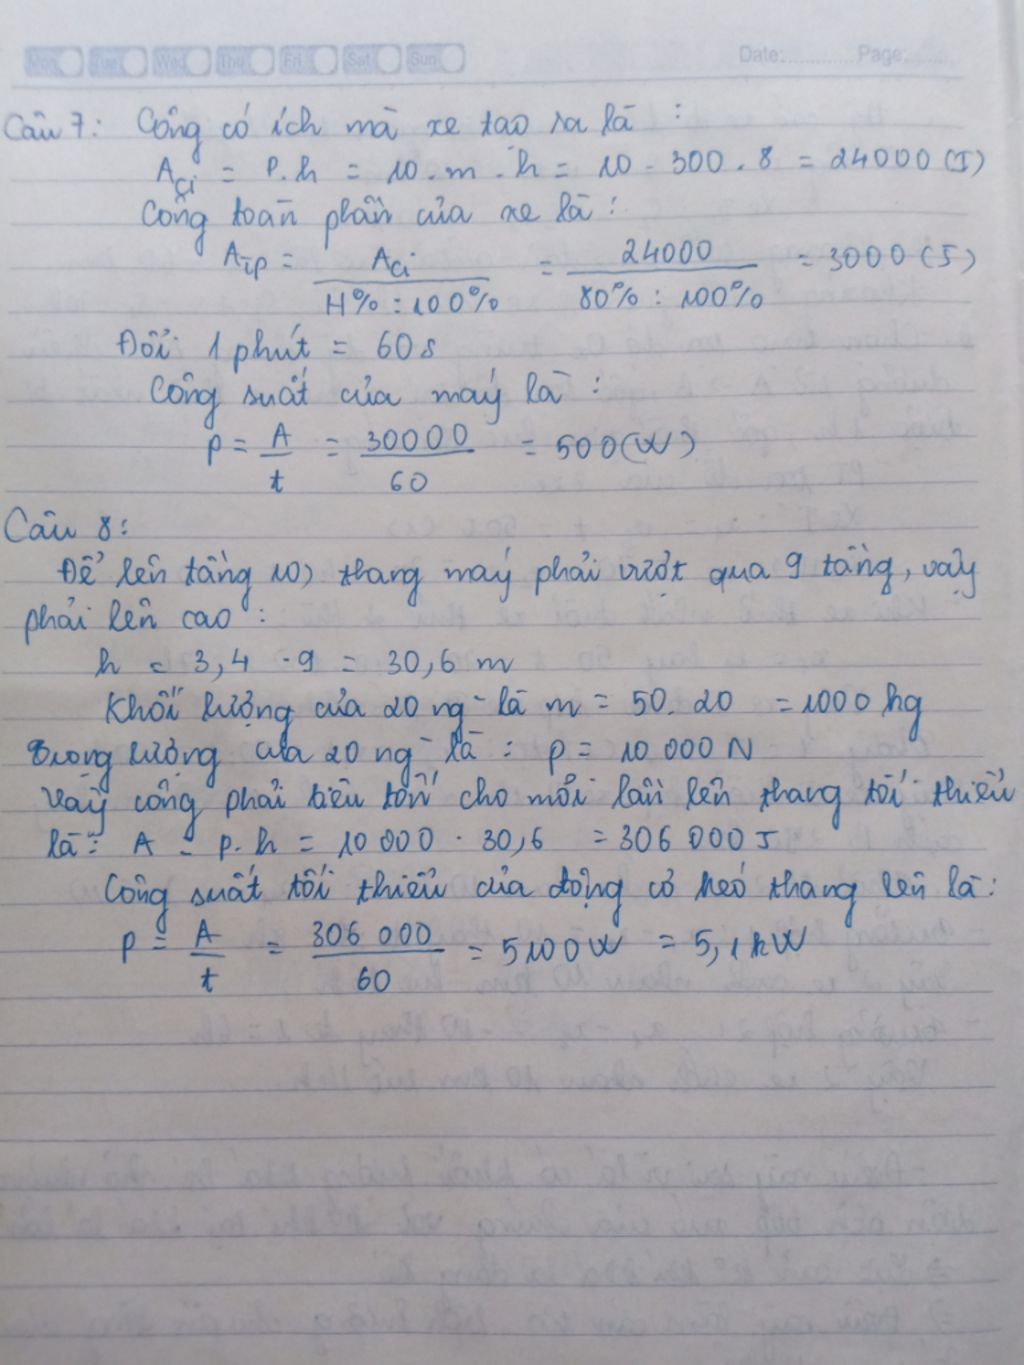 Mon Tue Wed Thu Fri Sat Sun Date:............ Page:........
Câu 7: Công có ích mà xe tạo ra là :
Aci = P.h = 10.m.h = 10.300.8 = 24000 (J)
Công toàn phần của xe là :
Atp = Aci / H% : 100% = 24000 / 80% : 100% = 3000 (J)
Đổi 1 phút = 60s
Công suất của máy là :
P = A / t = 30000 / 60 = 500(W)
Câu 8:
Để lên tầng 10, thang máy phải vượt qua 9 tầng, vậy
phải lên cao :
h = 3,4 . 9 = 30,6 m
Khối lượng của 20 ng- là m = 50.20 = 1000 kg
Trọng lượng của 20 ng- là : p = 10 000 N
Vậy công phải tiêu tốn cho mỗi lần lên thang tối thiểu
là: A = p.h = 10 000 . 30,6 = 306 000 J
Công suất tối thiểu của động cơ kéo thang lên là:
P = A / t = 306 000 / 60 = 5100W = 5,1 kW